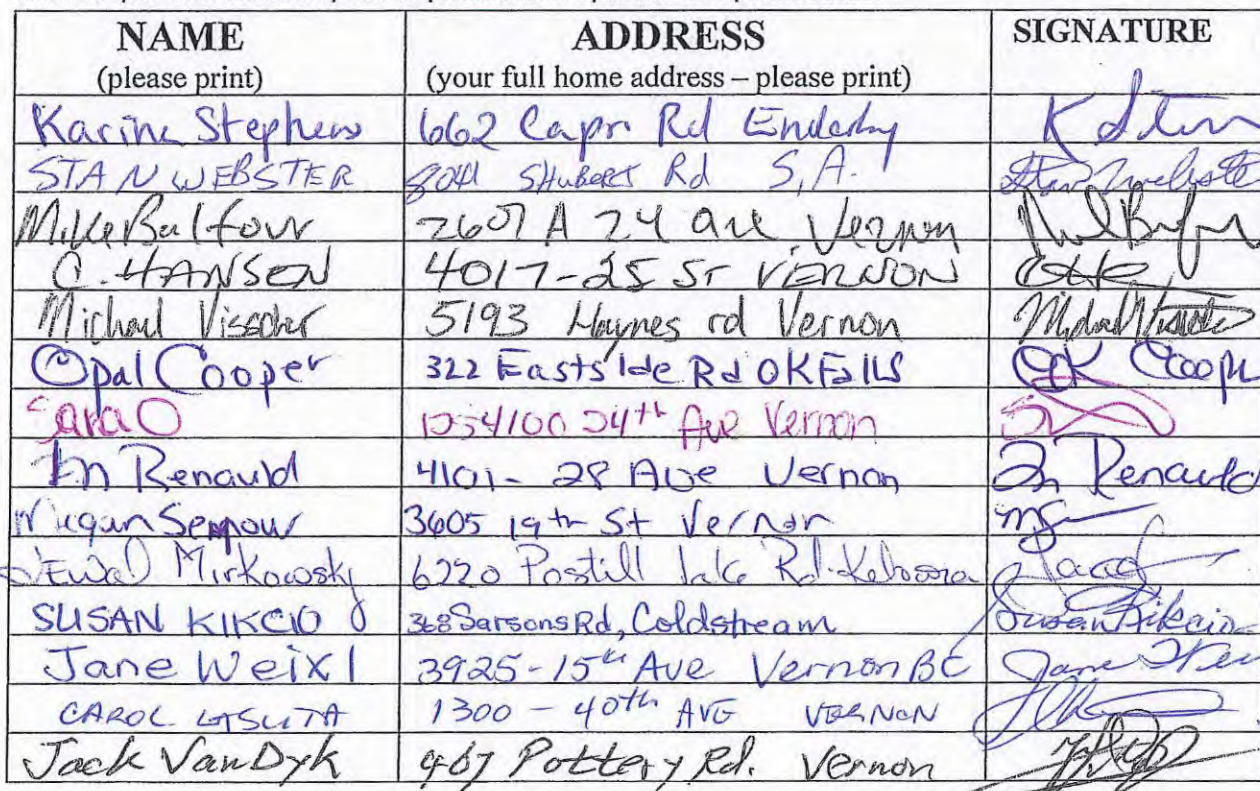 NAME ADDRESS SIGNATURE
(please print) (your full home address – please print)
Karine Stephens 662 Capri Rd Enderby K
STAN WEBSTER 8041 SHUBERT Rd S.A. Stan Webster
Mike Balfour 2607 A 24 ave Vernon
C. HANSEN 4017-25 ST VERNON
Michael Visscher 5193 Haynes rd Vernon Michael Visscher
Opal Cooper 322 Eastside Rd OK Falls Cooper
Sara O 24th Ave Vernon
Renauld 4101- 28 Ave Vernon Renauld
Megan Seymour 3605 19th St Vernon
Mirkowsky 6220 Postill Lake Rd. Kelowna
SUSAN KIKCIO 368 Sarsons Rd, Coldstream Susan Kikcio
Jane Weixl 3925-15th Ave Vernon BC Jane
CAROL 1300 - 40th AVE VERNON
Jack VanDyk 967 Pottery Rd. Vernon